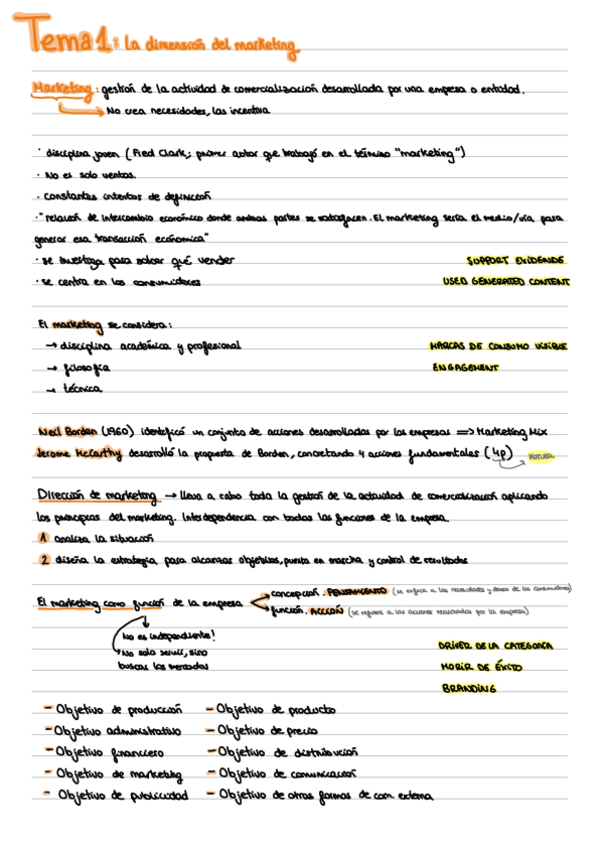 Tema 1: La dimensión del marketing
Marketing: gestión de la actividad de comercialización desarrollada por una empresa o entidad.
No crea necesidades, las incentiva
· disciplina joven (Fred Clark; primer autor que trabajó en el término "marketing")
· No es solo ventas.
· Constantes intentos de definición
· "relación de intercambio económico donde ambas partes se satisfacen. El marketing sería el medio/vía para
generar esa transacción económica"
· se investiga para saber qué vender SUPPORT EVIDENDE
· se centra en los consumidores USED GENERATED CONTENT
El marketing se considera:
→ disciplina académica y profesional MARCAS DE CONSUMO VISIBLE
→ filosofía ENGAGEMENT
→ técnica
Neil Borden (1960) identificó un conjunto de acciones desarrolladas por las empresas ⇒ Marketing Mix
Jerome McCarthy desarrolló la propuesta de Borden, concretando 4 acciones fundamentales (4p)
Dirección de marketing → lleva a cabo toda la gestión de la actividad de comercialización aplicando
los principios del marketing. Interdependencia con todas las funciones de la empresa.
1 analiza la situación
2 diseña la estrategia para alcanzar objetivos, puesta en marcha y control de resultados
concepción. PENSAMIENTO (se enfoca a las necesidades y deseos de los consumidores)
El marketing como función de la empresa
función. ACCIÓN (se refiere a las acciones realizadas por la empresa)
No es independiente!
No solo servir, sino DRIVER DE LA CATEGORÍA
buscar los mercados MORIR DE ÉXITO
BRANDING
- Objetivo de producción - Objetivo de producto
- Objetivo administrativo - Objetivo de precio
- Objetivo financiero - Objetivo de distribución
- Objetivo de marketing - Objetivo de comunicación
- Objetivo de publicidad - Objetivo de otras formas de com. externa